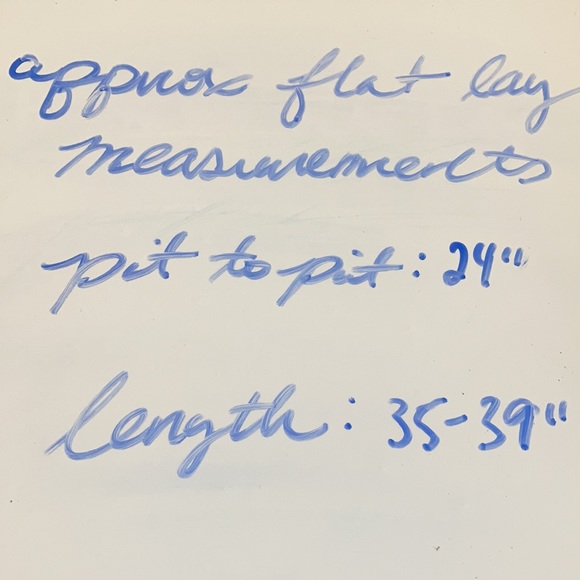 approx flat lay
measurements
pit to pit: 24"
length: 35-39"